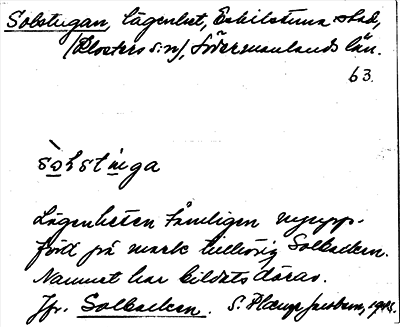 Solstugan, lägenhet, Eskilstuna stad,
(Klosters s:n), Södermanlands län.
63.
sòlstúga
Lägenheten tämligen nyupp-
förd på mark tillhörig Solbacken.
Namnet har bildats därav.
Jfr. Solbacken. S.